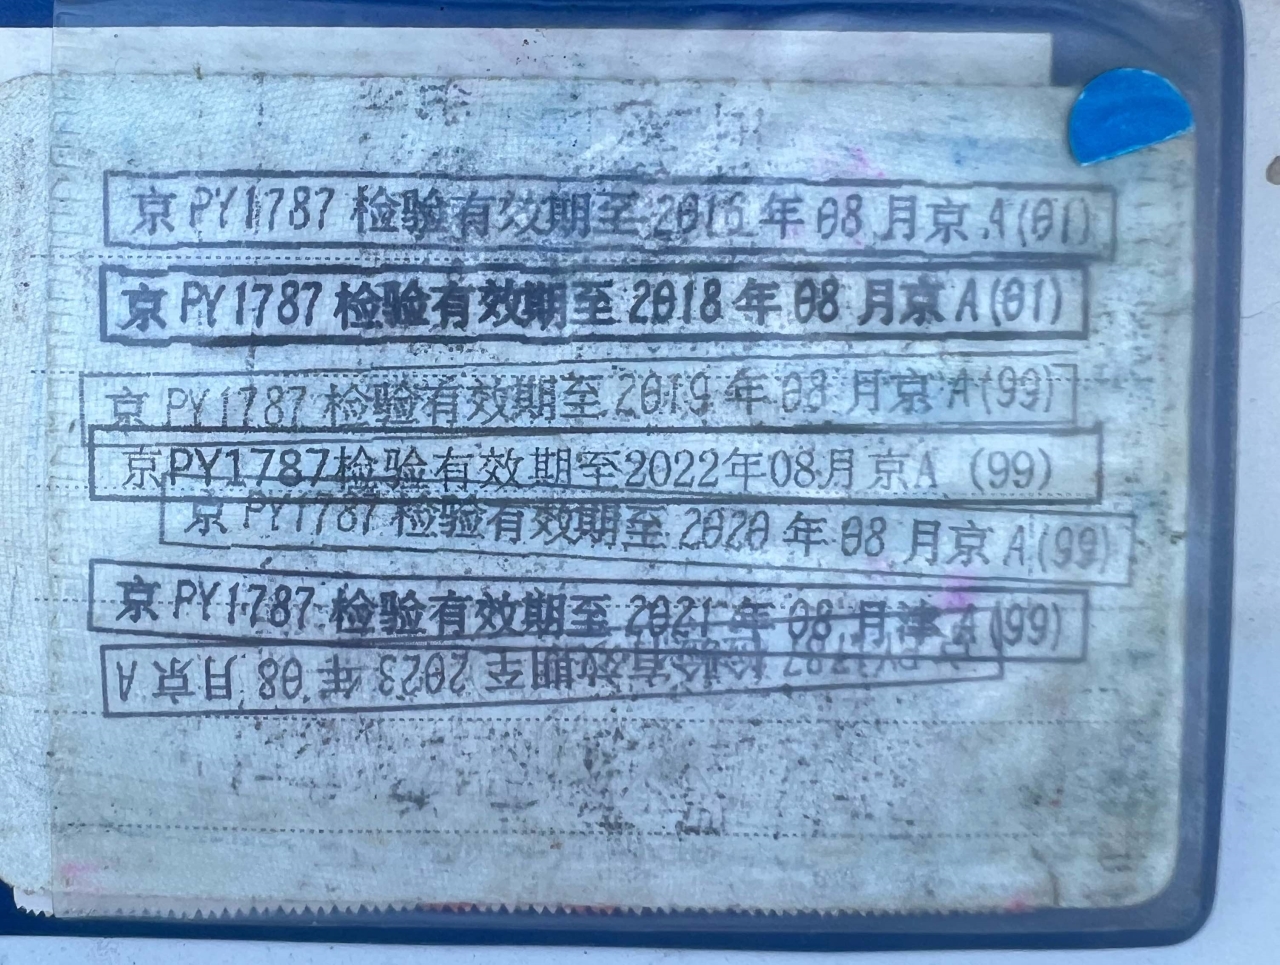 京PY1787 检验有效期至2016年08月京A(01)
京PY1787 检验有效期至2018年08月京A(01)
京PY1787 检验有效期至2019年08月京A(99)
京PY1787检验有效期至2022年08月京A (99)
京PY1787 检验有效期至2020年08月京A(99)
京PY1787 检验有效期至2021年08月津A(99)
京PY1787 检验有效期至2023年08月京A